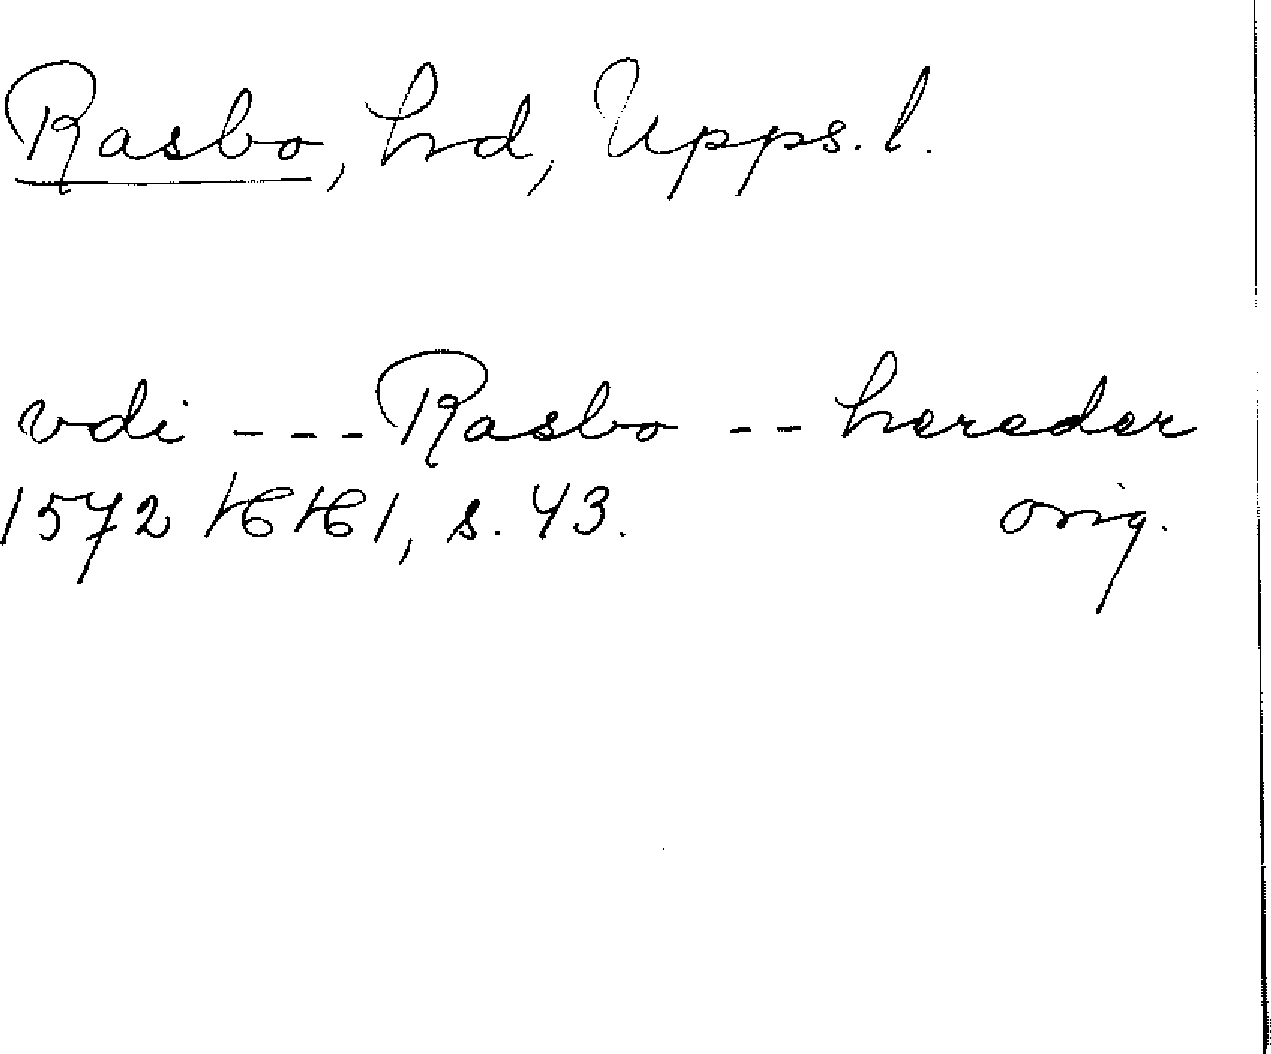 Rasbo, hd, Upps. l.
vdi --- Rasbo -- hereder
1572 1/6 1/6 1, s. 43. orig.